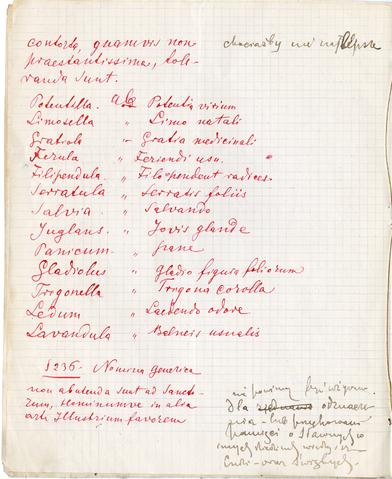 contorta, quamvis non
praestantissima, tole-
randa sunt.
chociażby nie najlepsze
Potentilla. a Potentia virium
Limosella " Limo natali
Gratiola " Gratia medicinali
Ferula " Feriendi usu.
Filipendula. " Filo pendent radices.
Serratula " Serratis foliis
Salvia. " Salvando
Juglans. " Jovis glande
Panicum. " pane
Gladiolus " Gladio figura foliorum
Trigonella " Trigona corolla
Ledum " Laedendo odore
Lavandula " Balneis usualis
§ 236. Nomina generica
non abutenda sunt ad Sancto-
rum, Hominumve in alia
arte Illustrium favorem
nie powinny być używane
dla
lub
o sławnych